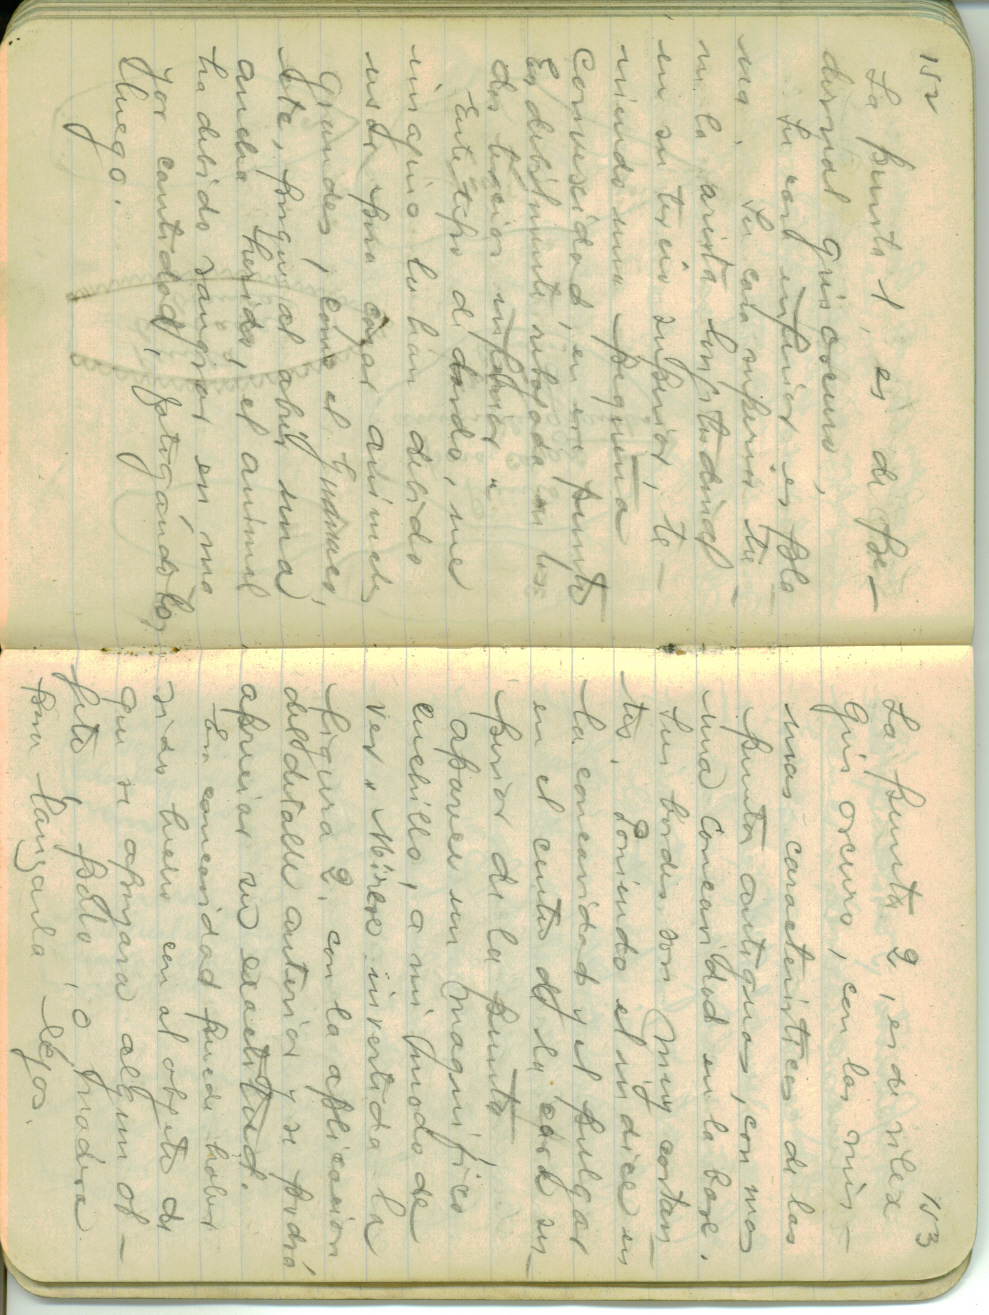 152
La punta 1, es de pe-
dernal gris oscuro,
Su cara inferior es pla
na. Su cara superior tie
ne la arista longitudinal
en su tercio superior, te-
niendo una pequeña
concavidad, en ese punto
Es debilmente rebajada en los
dos tercios inferior
Este tipo de dardo, me
imagino lo han debido
usar para cazar animales
grandes, como el guanaco,
etc, porque al abrir una
ancha herida, el animal
ha debido sangrar en ma
yor cantidad, fatigandolo
luego.
153
La punta 2, es de silex
gris oscuro, con las mis-
mas caracteristicas de las
punta antiguas, con mas
una concavidad en la base.
Sus bordes son muy cortan-
tes. Poniendo el indice en
la concavidad y el pulgar
en el centro de la cara su-
perior de la punta
aparece un magnifico
cuchillo, a mi modo de
ver. Mirese invertida la
figura 2, con la aplicación
del detalle anterior y se podrá
apreciar su exactitud.
La concavidad puede haber
sido hecha con al objeto de
que se apoyara algun ob-
jeto, palo, o madera
para lanzarla lejos.